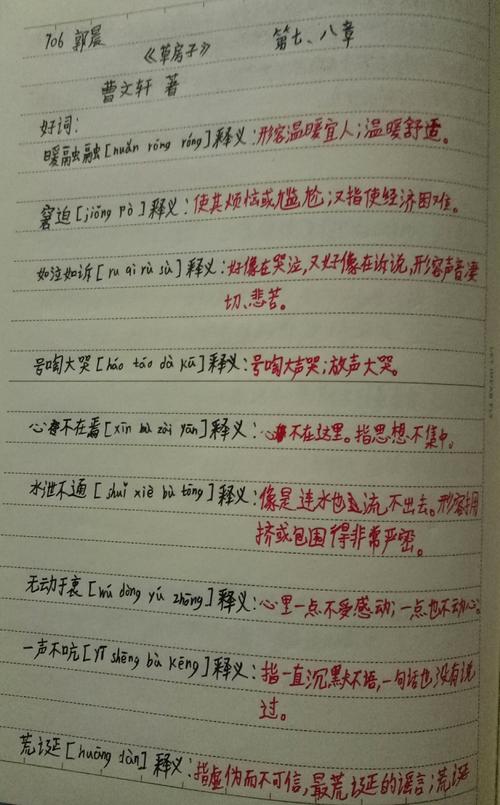 706 郭晨
《草房子》 第七、八章
曹文轩 著
好词:
暖融融[nuǎn róng róng]释义:形容温暖宜人;温暖舒适。
窘迫[jiǒng pò]释义:使其烦恼或尴尬;又指使经济困难。
如泣如诉[ru qi rú sù]释义:好像在哭泣,又好像在诉说,形容声音凄
切、悲苦。
号啕大哭[háo táo dà kū]释义:号啕大声哭;放声大哭。
心不在焉[xīn bù zài yān]释义:心不在这里。指思想不集中。
水泄不通[shuǐ xiè bù tōng]释义:像是连水也流不出去。形容拥
挤或包围得非常严密。
无动于衷[wú dòng yú zhōng]释义:心里一点不受感动;一点也不动心。
一声不吭[yī shēng bù kēng]释义:指一直沉默不语,一句话也没有说
过。
荒诞[huāng dàn]释义:指虚伪而不可信,最荒诞的谣言;荒诞